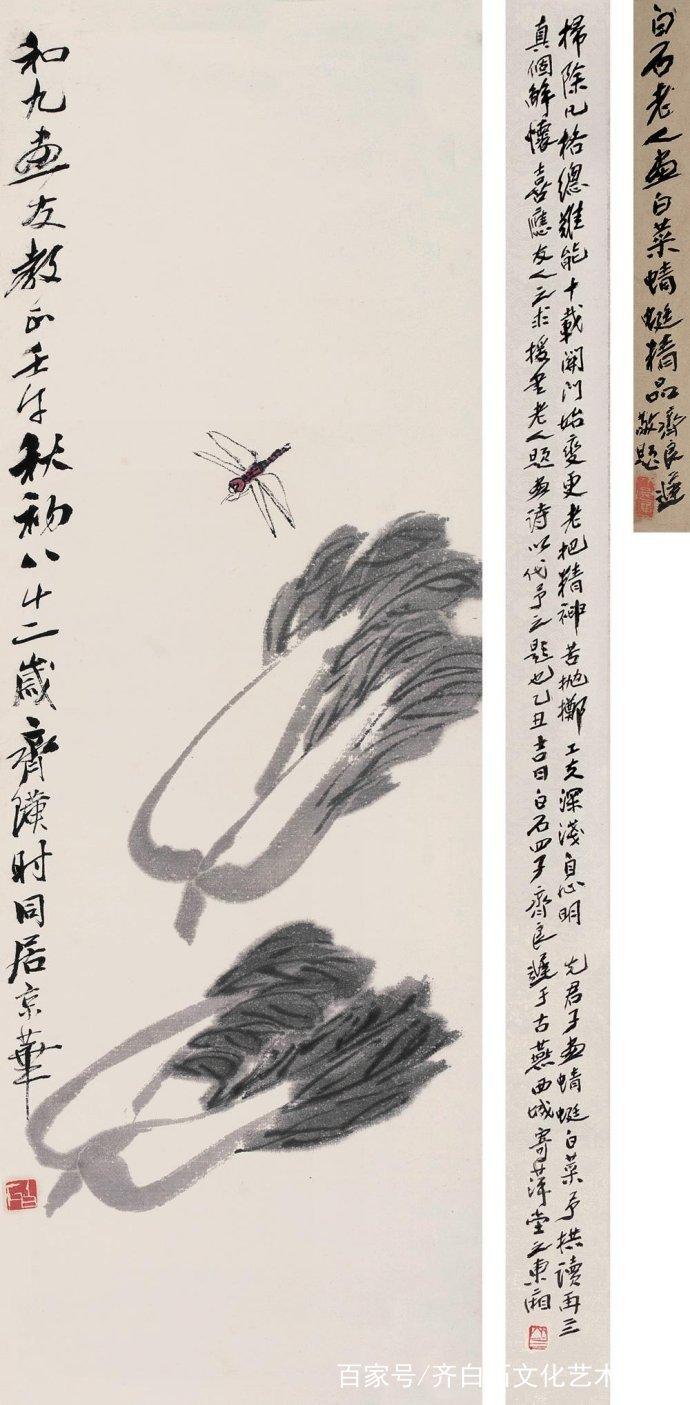 白石老人画白菜蜻蜓精品齊良遲
敬題
掃除凡格總難能十載關門始變更老把精神苦抛擲工夫深淺自心明 先君子画蜻蜓白菜予拱讀再三
真個解懷喜應友人之求援筆老人題画詩以代予之題也乙丑吉日白石四子齊良遲于古燕西城寄萍堂之東廂
和九画友教正壬午秋初八十二歲齊璜时同居京華
百家号/齐白石文化艺术